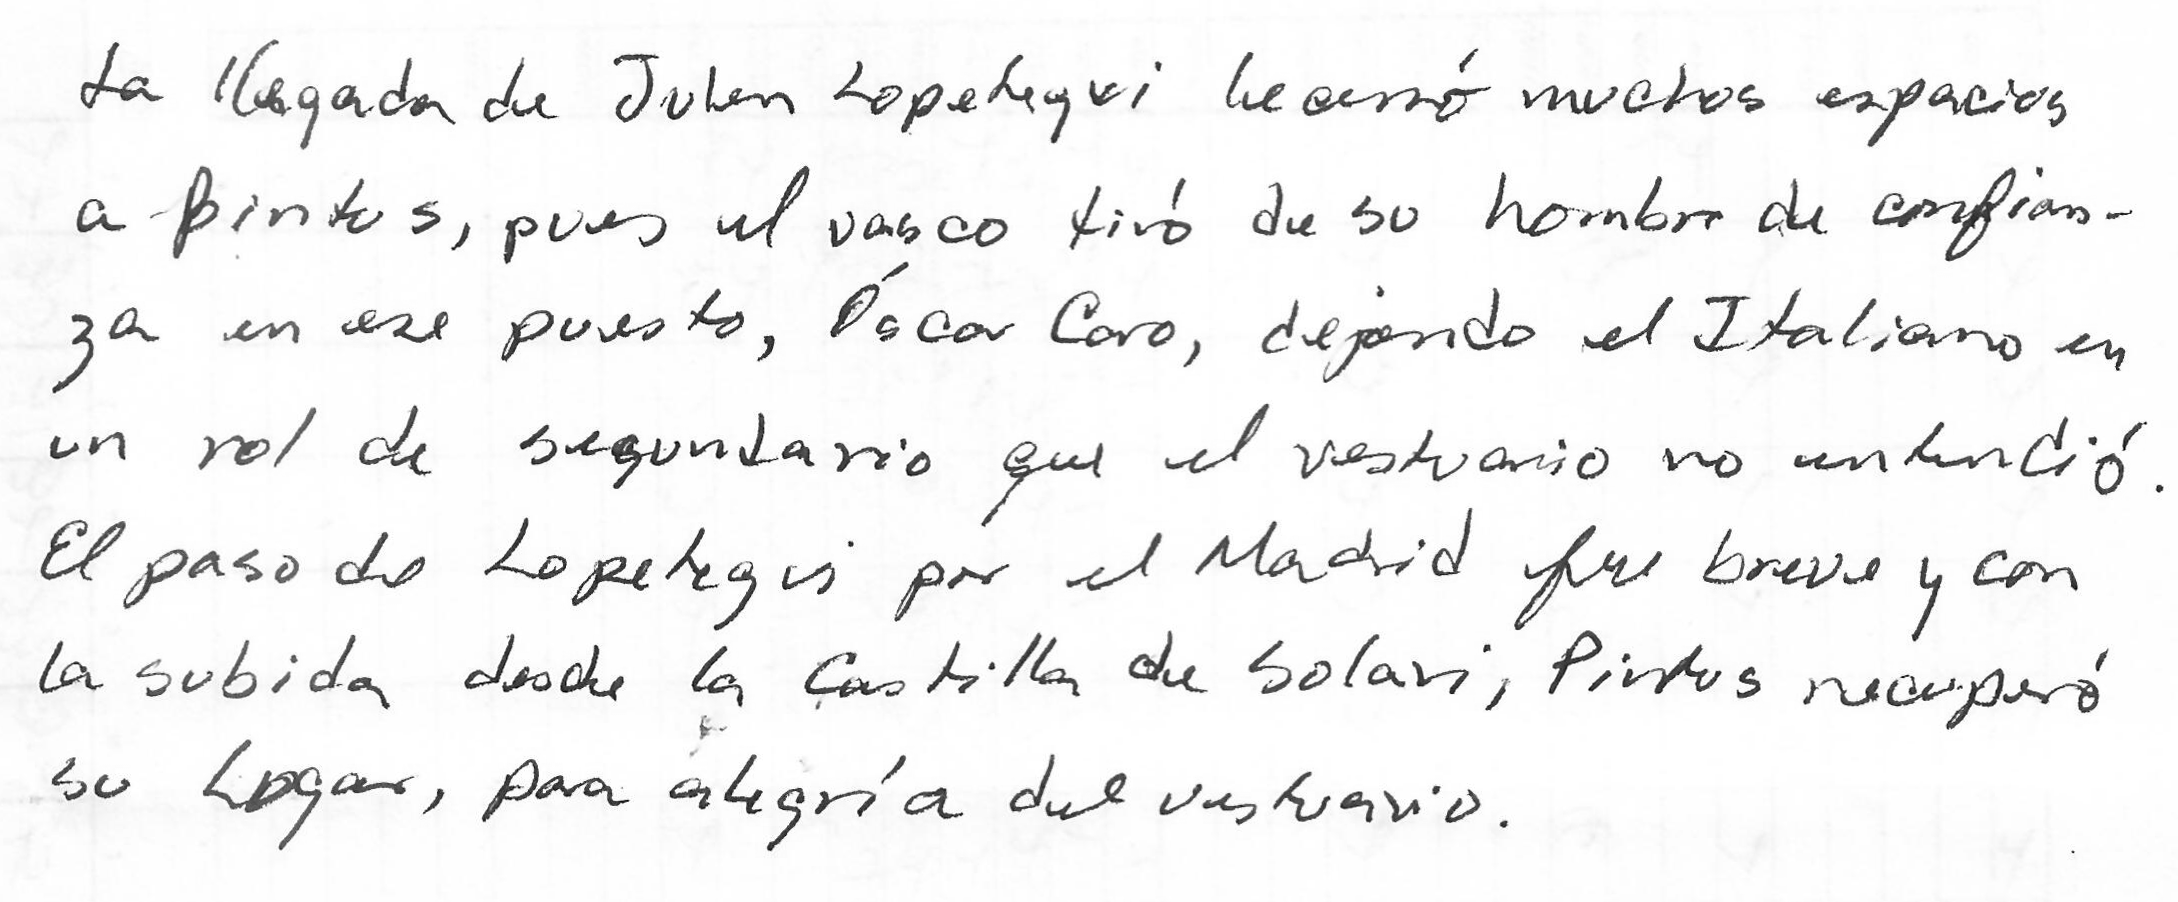 La llegada de Julen Lopetegui le cerró muchos espacios
a Pintus, pues el vasco tiró de su hombre de confian-
za en ese puesto, Óscar Caro, dejando el Italiano en
un rol de segundario que el vestuario no entendió.
El paso de Lopetegui por el Madrid fue breve y con
la subida desde la Castilla de Solari, Pintus recuperó
su lugar, para alegría del vestuario.